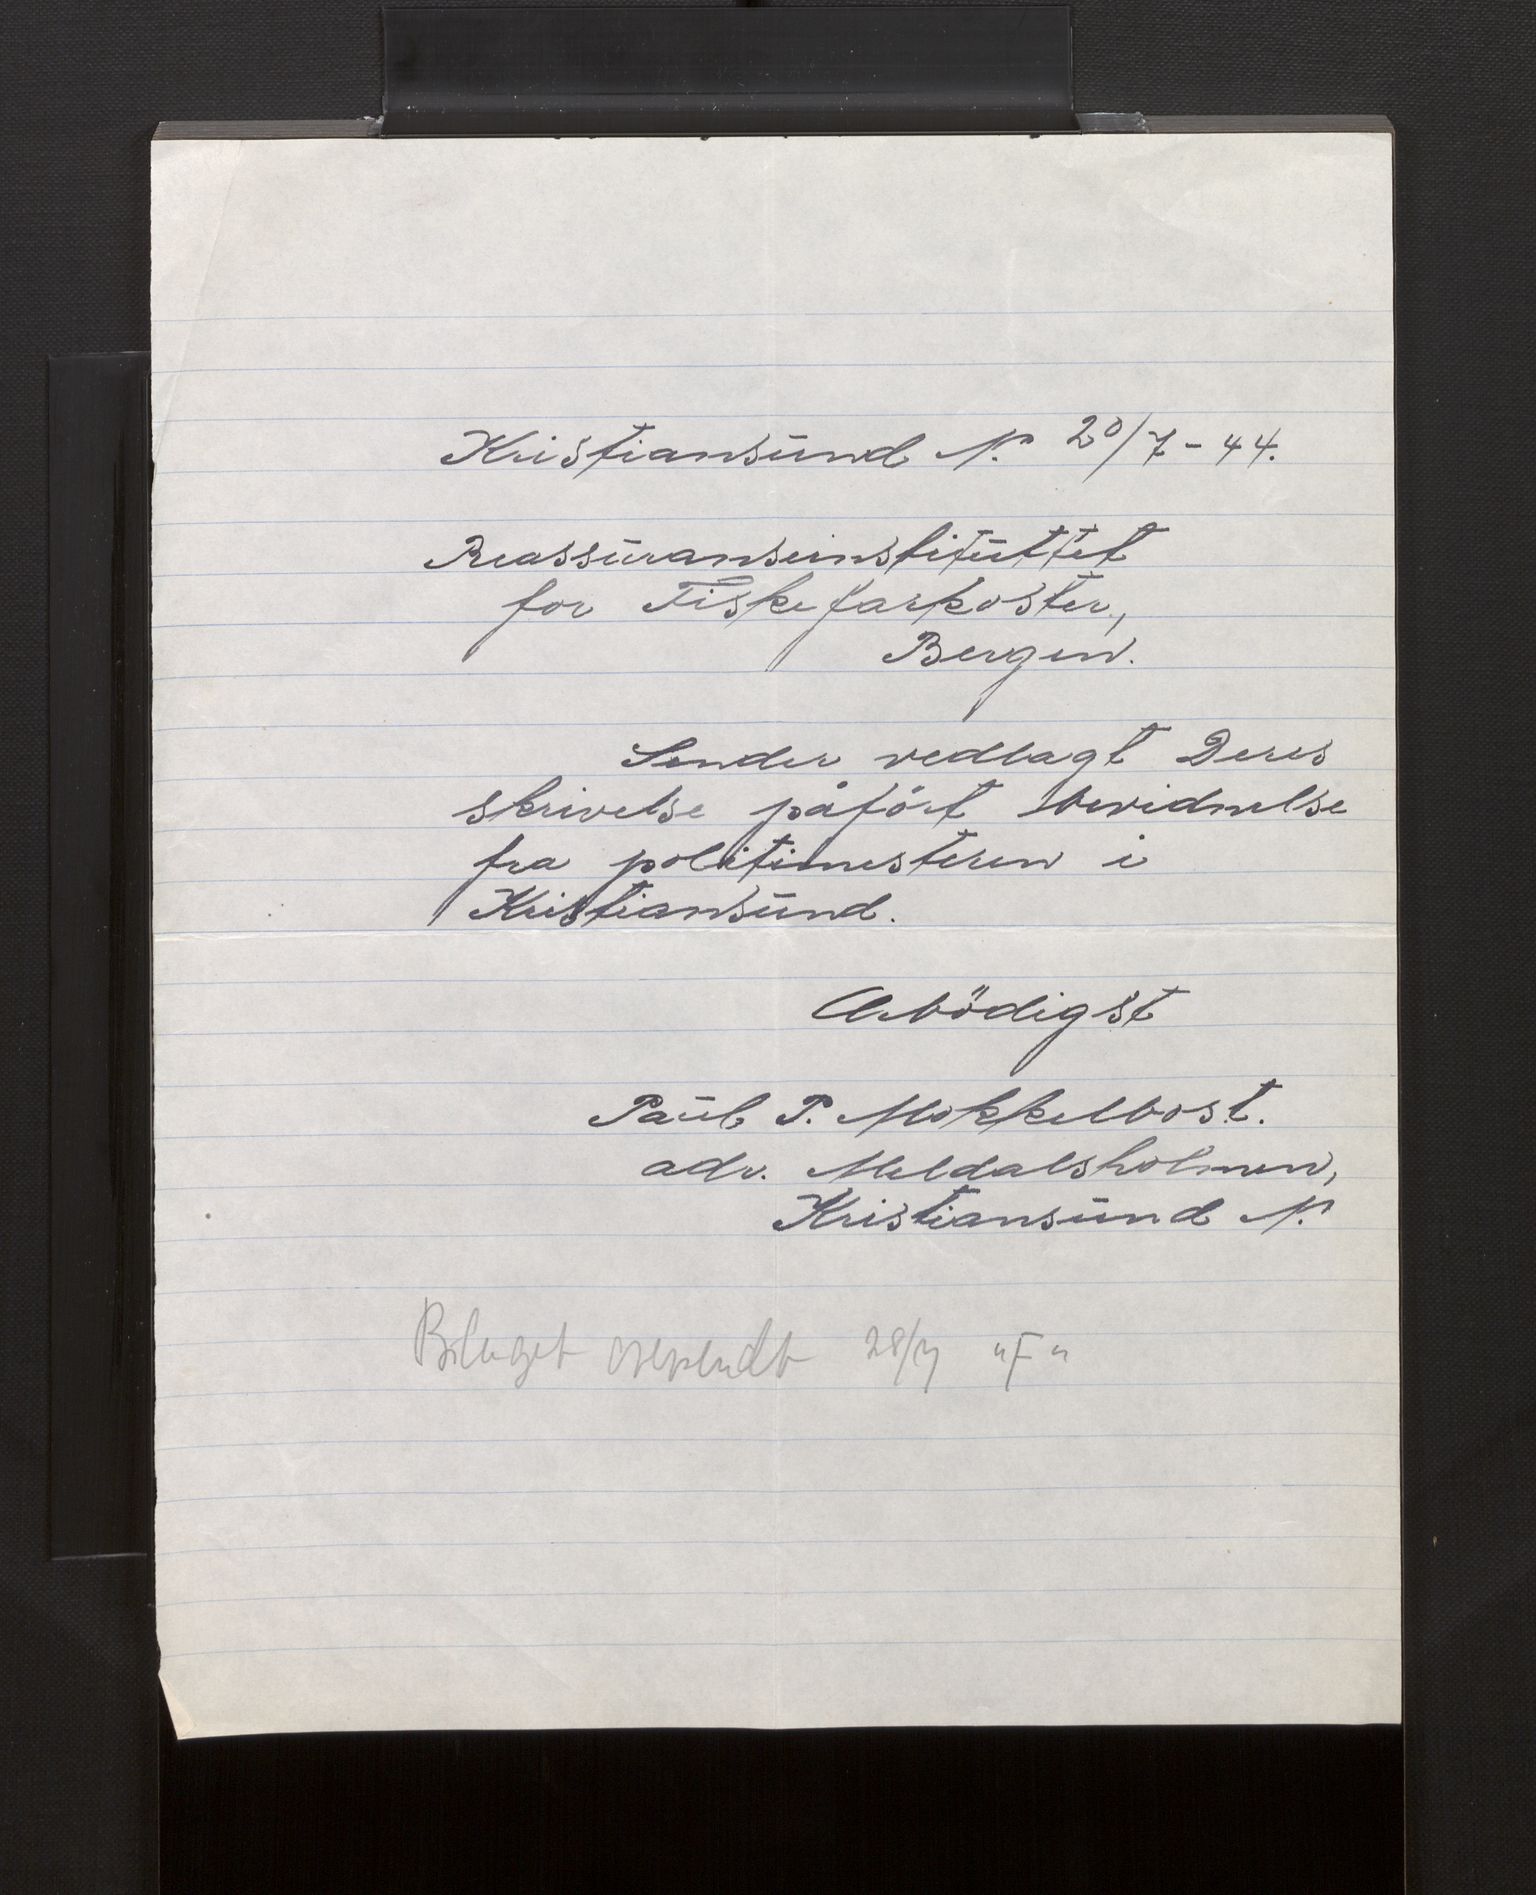 Kristiansund N. 20/7-44.
Reassuranseinstituttet
for Fiskefarkoster,
Bergen.
Sender vedlagt Deres
skrivelse påført bevidnelse
fra politimesteren i
Kristiansund.
Arbödigst
Paul P. Mokkelbost.
adr. Meldalsholmen,
Kristiansund N.
Bilaget oversendt 28/7 "F"